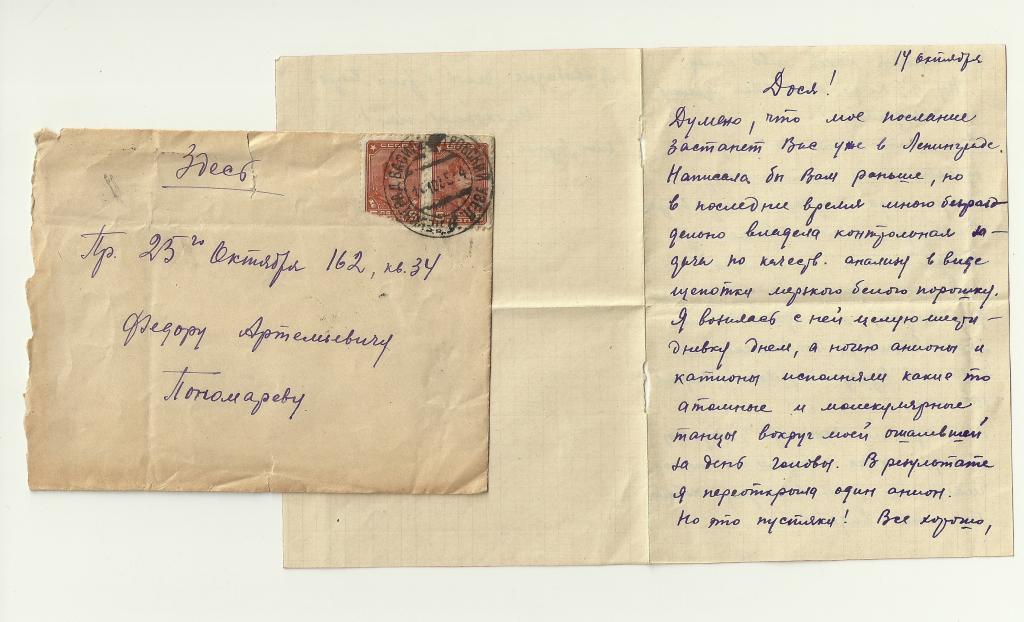 Здесь
Пр. 25го Октября 162, кв. 34
Федору Артемьевичу
Пономареву
14 октября
Дося!
Думаю, что мое послание
застанет Вас уже в Ленинграде.
Написала бы Вам раньше, но
в последнее время мною безраз-
дельно владела контрольная за-
дача по качеств. анализу в виде
щепотки мерзкого белого порошку.
Я возилась с ней целую шести-
дневку днем, а ночью анионы и
катионы исполняли какие то
атомные и молекулярные
танцы вокруг моей ошалевшей
за день головы. В результате
я переоткрыла один анион.
Но это пустяки! Все хорошо,